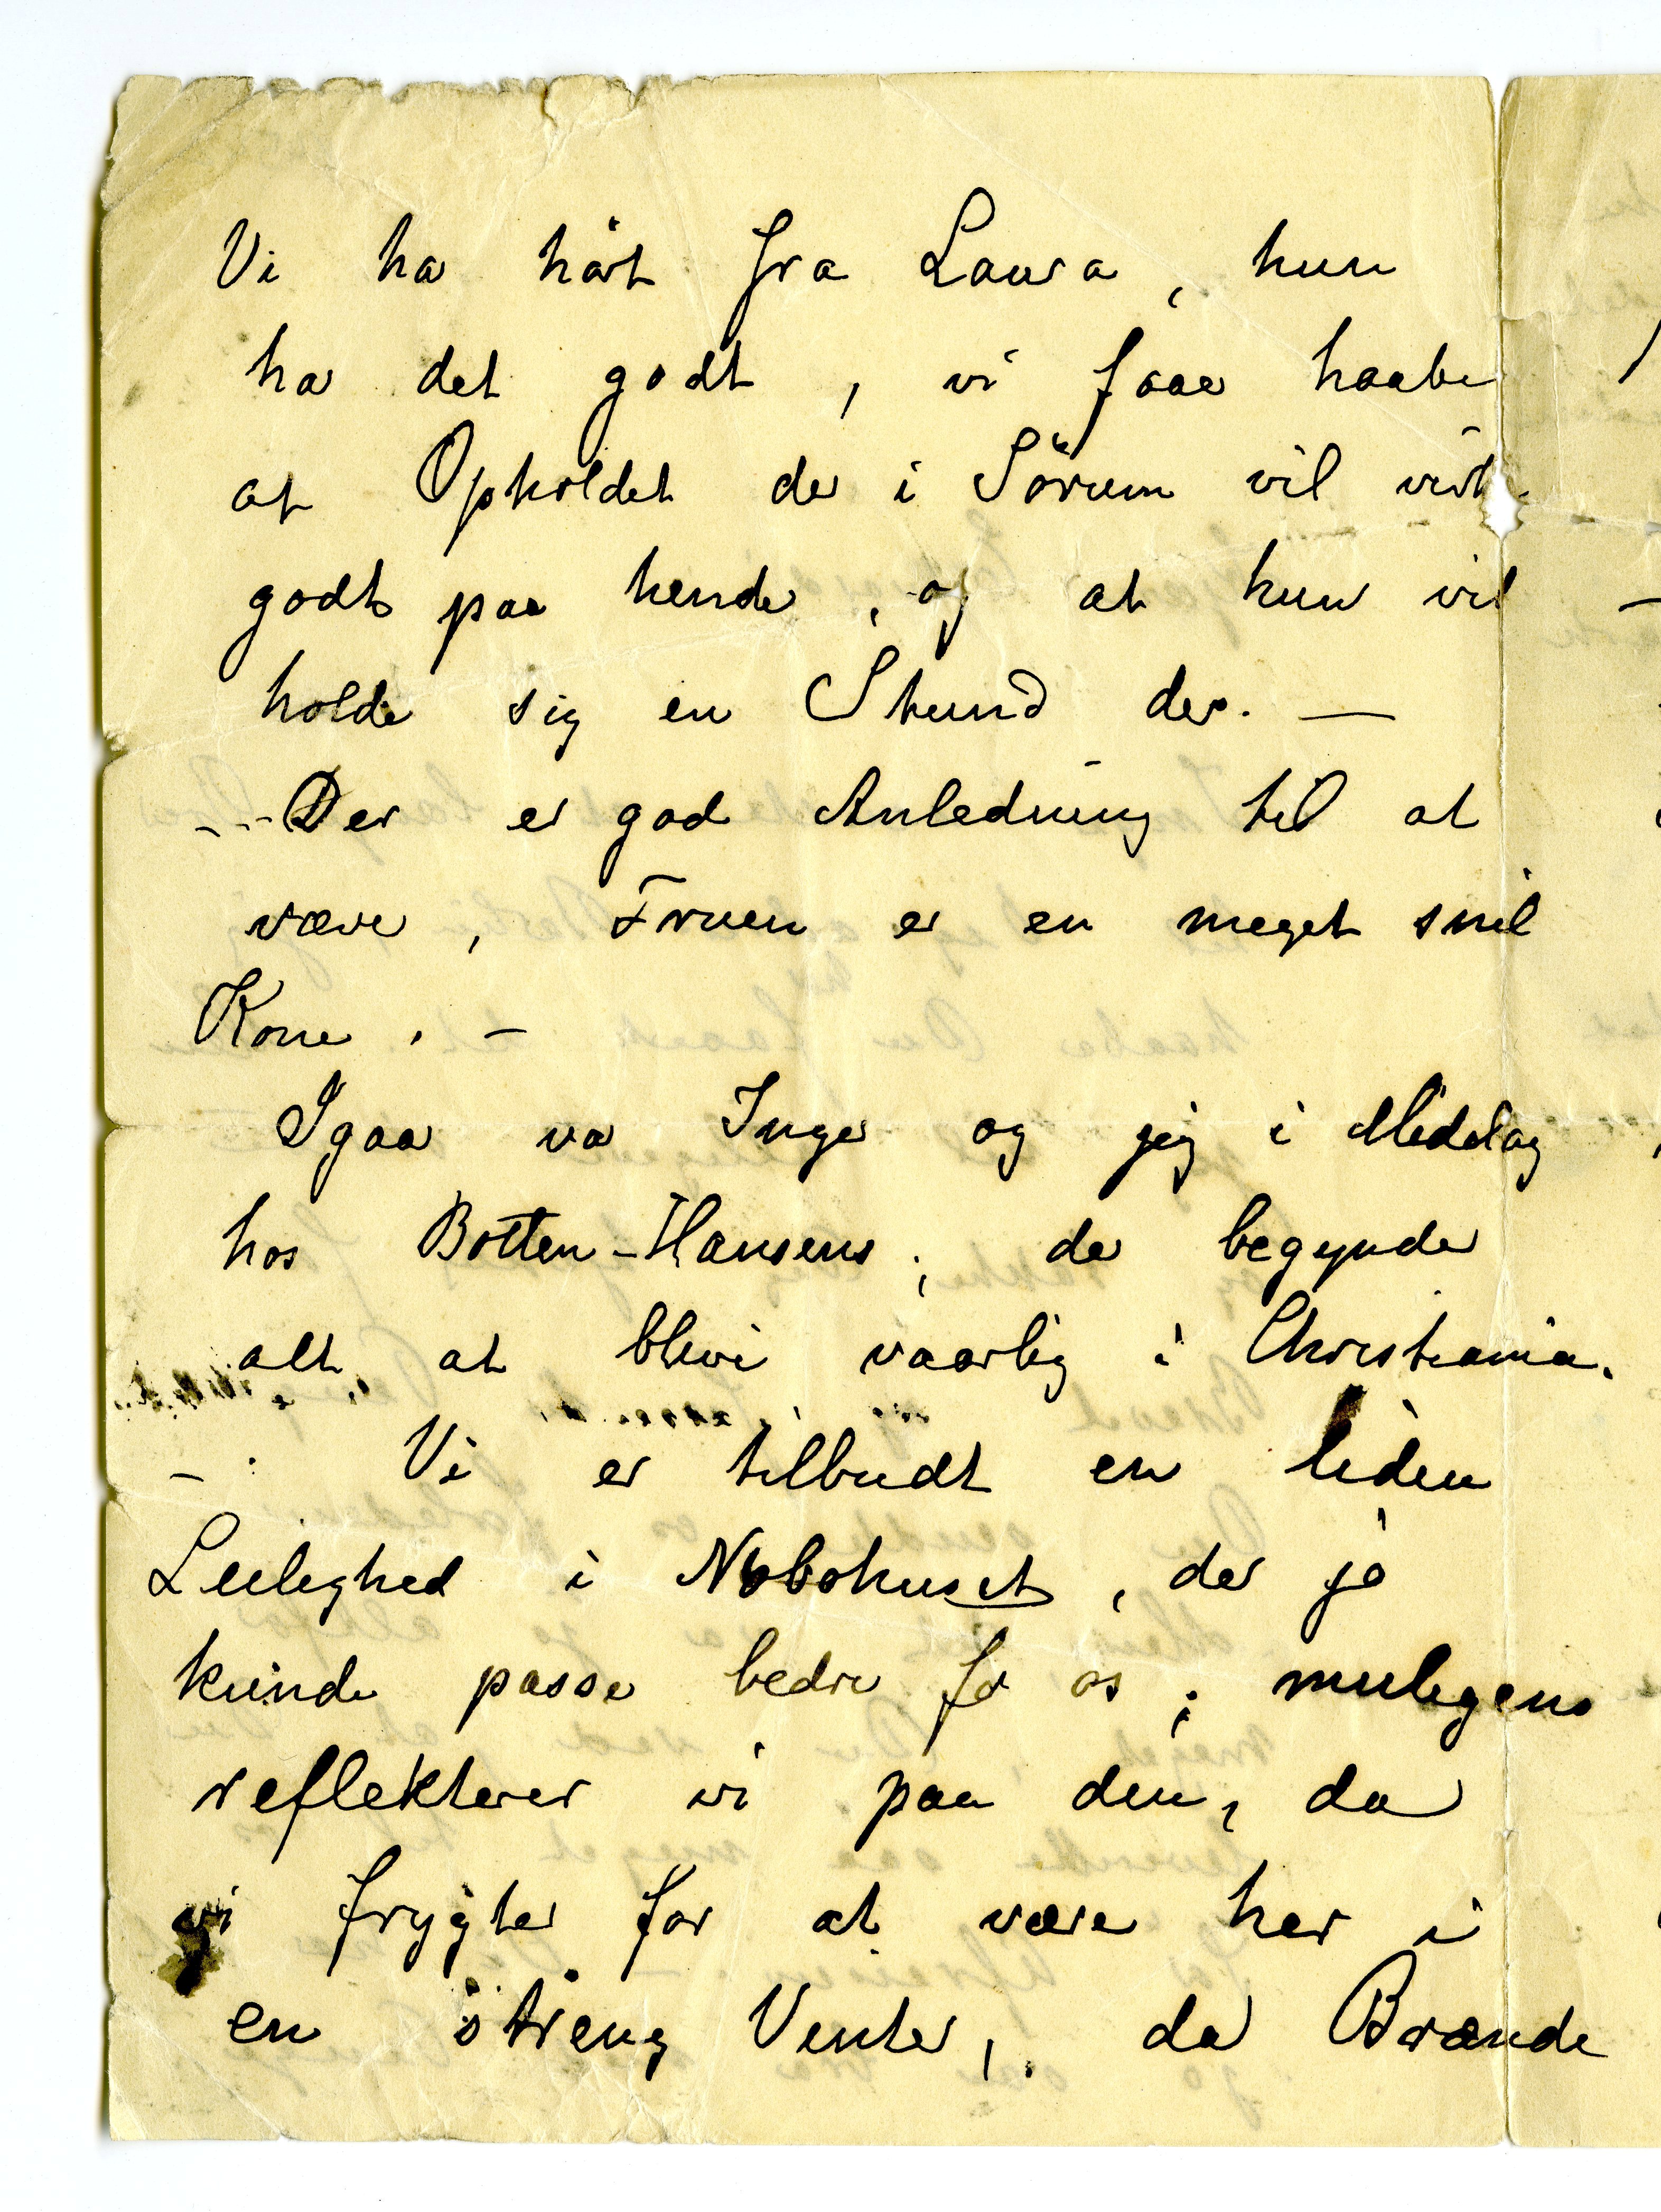 Vi har hört fra Laura, hun
har det godt, vi faar haabe
at Opholdet der i Sörum vil virke
godt paa hende, og at hun vil
holde sig en Stund der. —
– Der er god Anledning til at
være, Fruen er en meget snil
Kone. –
Igaar var Inger og jeg i Middag
hos Botten-Hansens; det begynder
alt at blive vaarlig i Christiania.
– Vi er tilbudt en liden
Leilighed i Nabohuset, der jo
kunde passe bedre for os; muligens
reflekterer vi paa den, da
vi frygter for at være her i
en streng Vinter, da Brænde